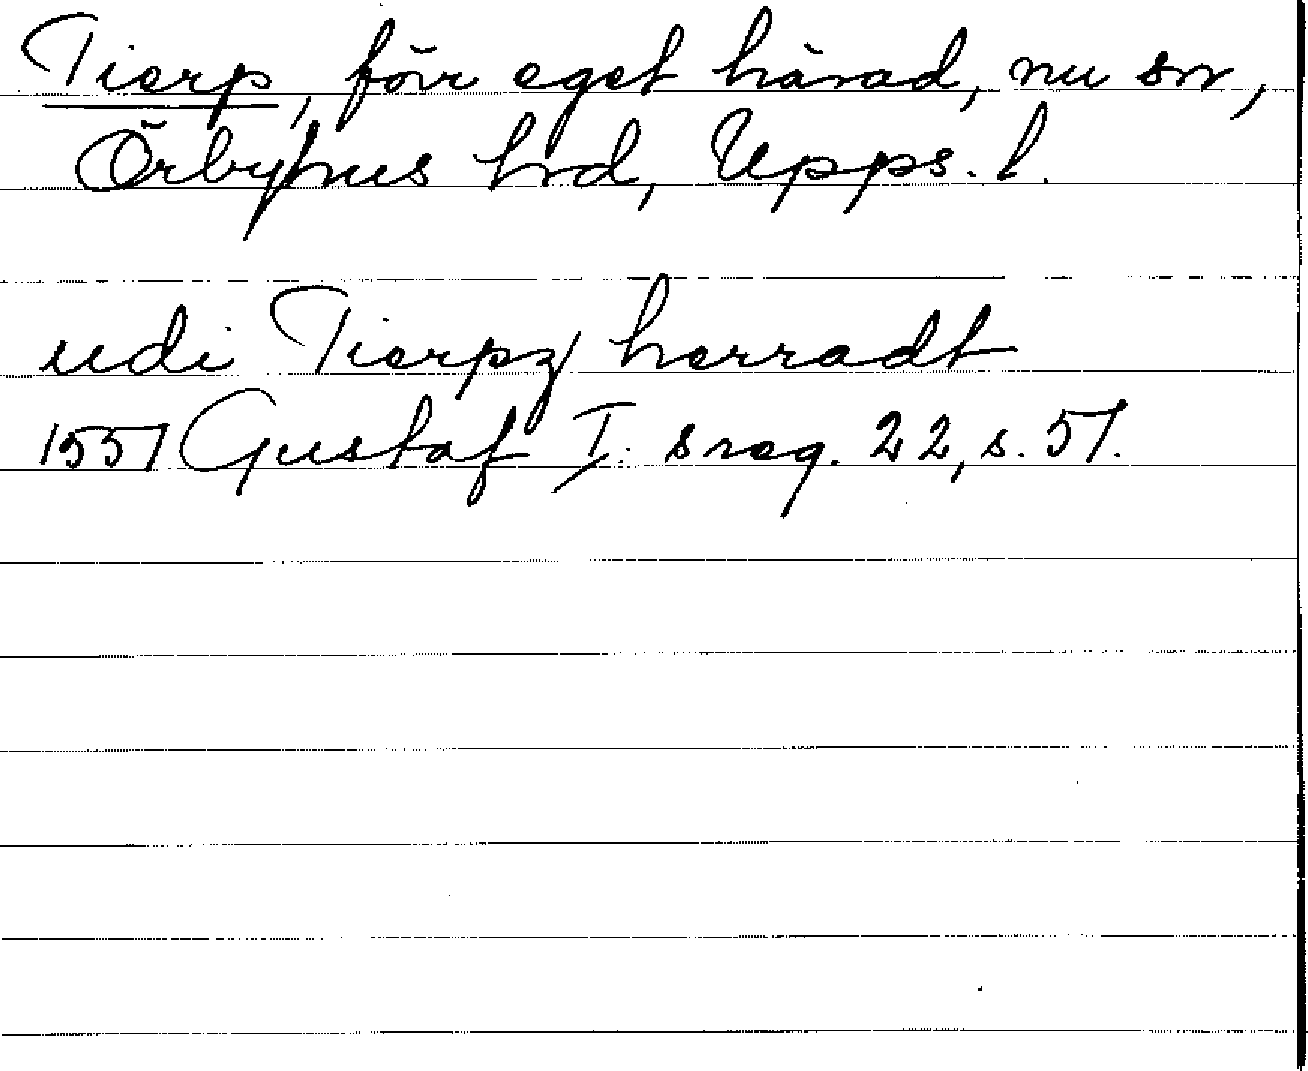 Tierp, förr eget härad, nu sn,
Örbyhus hrd, Upps. l.
udi Tierpz herradt
1551 Gustaf I:s reg. 22, s. 51.